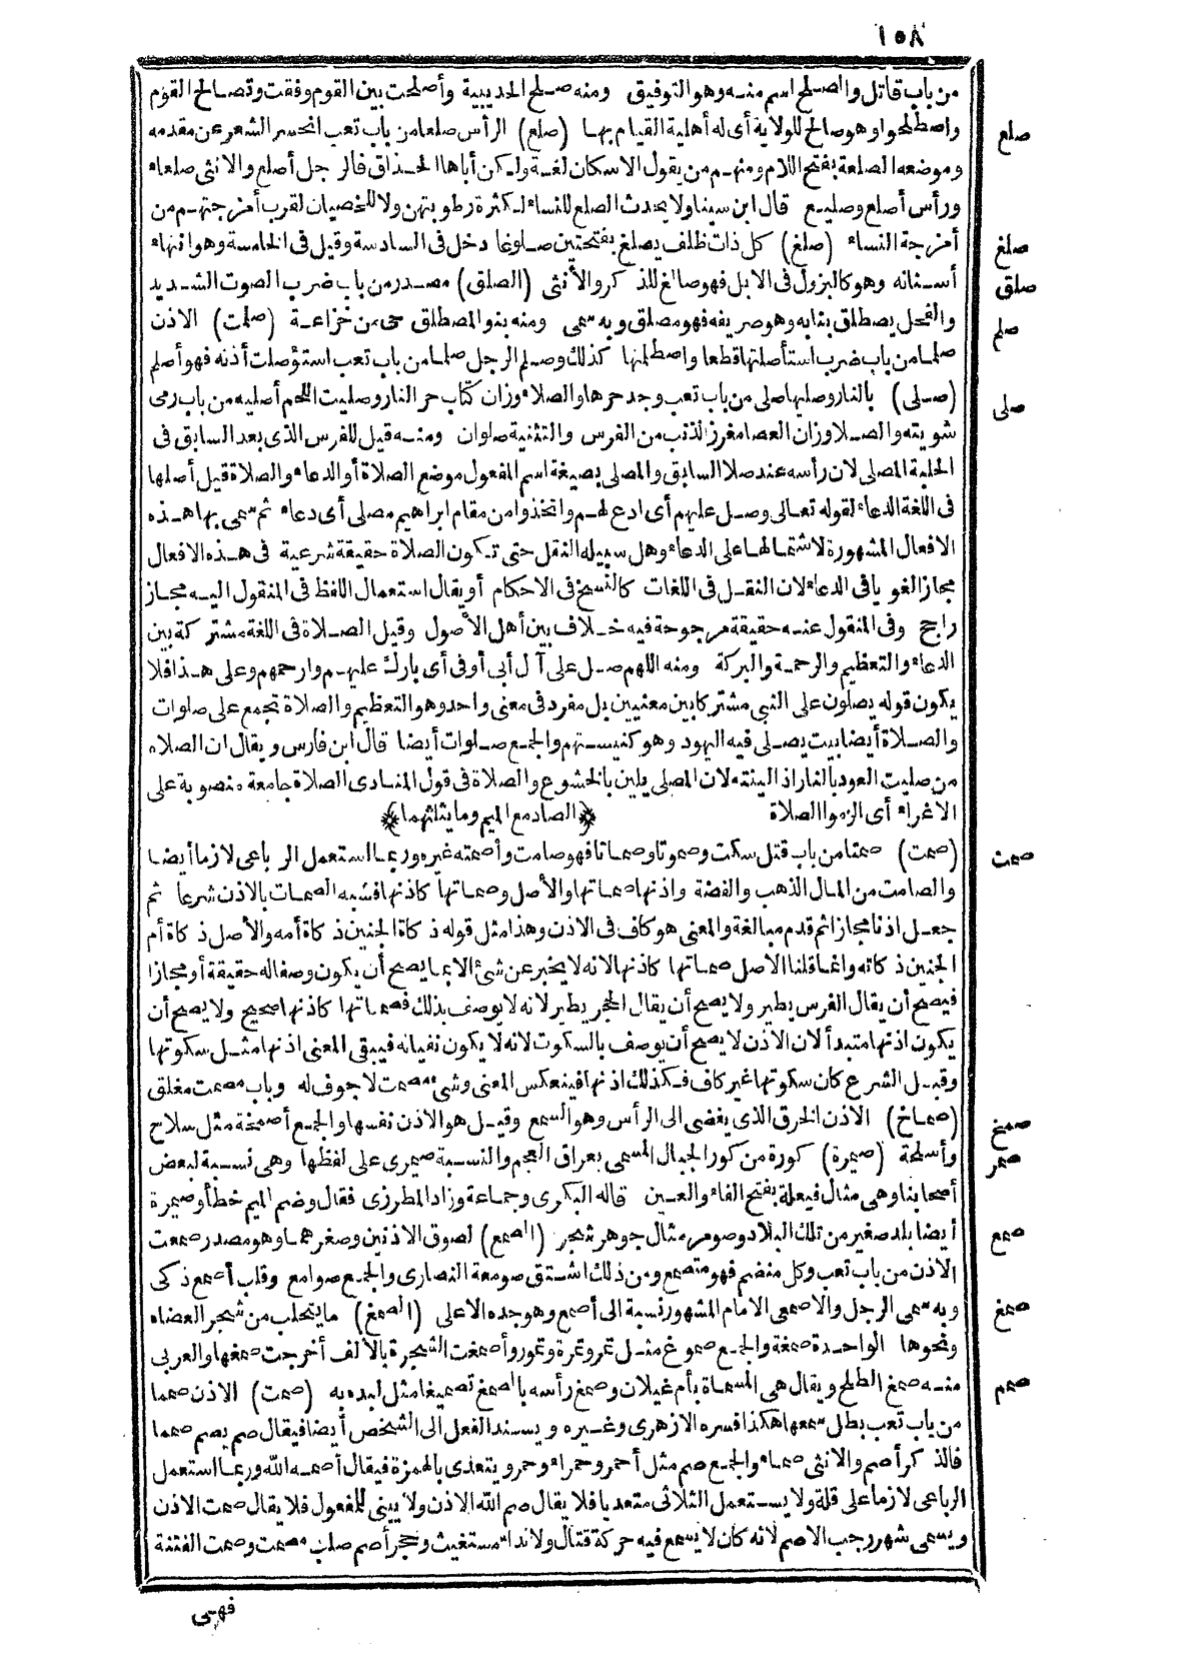 ١٥٨
من باب قاتل والصلح اسم منه وهو التوفيق ومنه صلح الحديبية وأصلحت بين القوم وفقت وتصالح القوم
واصطلحوا وهو صالح للولاية أى له أهلية القيام بها (صلع) الرأس صلعا من باب تعب انحسر الشعر عن مقدمه
صلع
وموضعه الصلعة بفتح اللام ومنهم من يقول الاسكان لغة ولكن أباها الحذاق فالرجل أصلع والانثى صلعاء
ورأس أصلع وصليع قال ابن سينا ولا يحدث الصلع للنساء لكثرة رطوبتهن ولا للخصيان لقرب أمزجتهم من
أمزجة النساء (صلغ) كل ذات ظلف يصلغ بفتحتين صلوغا دخل فى السادسة وقيل فى الخامسة وهو انتهاء
صلغ
أسنانه وهو كالبزول فى الابل فهو صالغ للذكر والأنثى (الصلق) مصدر من باب ضرب الصوت الشديد
صلق
والفحل يصطلق بنابه وهو صريفه فهو مصلق وبه سمى ومنه بنو المصطلق حى من خزاعة (صلمت) الاذن
صلم
صلما من باب ضرب استأصلتها قطعا واصطلمتها كذلك وصلم الرجل صلما من باب تعب استؤصلت أذنه فهو أصلم
(صلى) بالنار وصليها صلى من باب تعب وجد حرها والصلاء وزان كتاب حر النار وصليت اللحم أصليه من باب رمى
صلى
شويته والصلا وزان العصا مغرز الذنب من الفرس والتثنية صلوان ومنه قيل للفرس الذى بعد السابق فى
الحلبة المصلى لان رأسه عند صلا السابق والمصلى بصيغة اسم المفعول موضع الصلاة أو الدعاء والصلاة قيل أصلها
فى اللغة الدعاء لقوله تعالى وصل عليهم أى ادع لهم واتخذوا من مقام ابراهيم مصلى أى دعاء ثم سمى بها هذه
الافعال المشهورة لاشتمالها على الدعاء وهل سبيله النقل حتى تكون الصلاة حقيقة شرعية فى هذه الافعال
مجازا لغويا فى الدعاء لان النقل فى اللغات كالنسخ فى الاحكام أو يقال استعمال اللفظ فى المنقول اليه مجاز
راجح وفى المنقول عنه حقيقة مرجوحة فيه خلاف بين أهل الأصول وقيل الصلاة فى اللغة مشتركة بين
الدعاء والتعظيم والرحمة والبركة ومنه اللهم صل على آل أبى أوفى أى بارك عليهم وارحمهم وعلى هذا فلا
يكون قوله يصلون على النبى مشتركا بين معنيين بل مفرد فى معنى واحد وهو التعظيم والصلاة تجمع على صلوات
والصلاة أيضا بيت يصلى فيه اليهود وهو كنيستهم والجمع صلوات أيضا قال ابن فارس ويقال ان الصلاة
من صليت العود بالنار اذا لينته لان المصلى يلين بالخشوع والصلاة فى قول المنادى الصلاة جامعة منصوبة على
الاغراء أى الزموا الصلاة ﴿الصاد مع الميم وما يثلثهما﴾
(صمت) صمتا من باب قتل سكت وصموتا وصماتا فهو صامت وأصمته غيره وربما استعمل الرباعى لازما أيضا
صمت
والصامت من المال الذهب والفضة واذنها صماتها والأصل وصماتها كاذنها فشبه الصمات بالاذن شرعا ثم
جعل اذنا مجازا ثم قدم مبالغة والمعنى هو كاف فى الاذن وهذا مثل قوله ذكاة الجنين ذكاة أمه والأصل ذكاة أم
الجنين ذكاته وانما قلنا الاصل صماتها كاذنها لانه لا يخبر عن شئ الا بما يصح أن يكون وصفا له حقيقة أو مجازا
فيصح أن يقال الفرس يطير ولا يصح أن يقال الحجر يطير لانه لا يوصف بذلك فصماتها كاذنها صحيح ولا يصح أن
يكون اذنها مبتدأ لان الاذن لا يصح أن يوصف بالسكوت لانه لا يكون نفيا له فيبقى المعنى اذنها مثل سكوتها
وقبل الشرع كان سكوتها غير كاف فكذلك اذنها فينعكس المعنى وشئ مصمت لا جوف له وباب مصمت مغلق
(صماخ) الاذن الخرق الذى يفضى الى الرأس وهو السمع وقيل هو الاذن نفسها والجمع أصمخة مثل سلاح
صمخ
وأسلحة (صيمرة) كورة من كور الجبال المسمى بعراق العجم والنسبة صيمرى على لفظها وهى نسبة لبعض
صمر
أصحابنا وهى مثال فيعلة بفتح الفاء والعين قاله البكرى وجماعة وزاد المطرزى فقال وضم الميم خطأ وصيمرة
أيضا بلد صغير من تلك البلاد وصومر مثال جوهر شجر (الصمع) لصوق الاذنين وصغرهما وهو مصدر صمعت
صمع
الاذن من باب تعب وكل منضم فهو متصمع ومن ذلك اشتق صومعة النصارى والجمع صوامع وقلب أصمع ذكى
وبه سمى الرجل والاصمعى الامام المشهور نسبة الى أصمع وهو جده الاعلى (الصمغ) ما يتحلب من شجر العضاه
صمغ
ونحوها الواحدة صمغة والجمع صموغ مثل تمر وتمرة وتمور وأصمغت الشجرة بالألف أخرجت صمغها والعربى
منه صمغ الطلح ويقال هى المسماة بأم غيلان وصمغ رأسه بالصمغ تصميغا مثل لبده به (صمت) الاذن صمما
صمم
من باب تعب بطل سمعها هكذا فسره الازهرى وغيره ويسند الفعل الى الشخص أيضا فيقال صم يصم صمما
فالذكر أصم والانثى صماء والجمع صم مثل أحمر وحمراء وحمر ويتعدى بالهمزة فيقال أصمه الله وربما استعمل
الرباعى لازما على قلة ولا يستعمل الثلاثى متعديا فلا يقال صم الله الاذن ولا يبنى للمفعول فلا يقال صمت الاذن
ويسمى شهر رجب الاصم لانه كان لا يسمع فيه حركة قتال ولا نداء مستغيث وحجر أصم صلب مصمت وصمت الفتنة
فهى